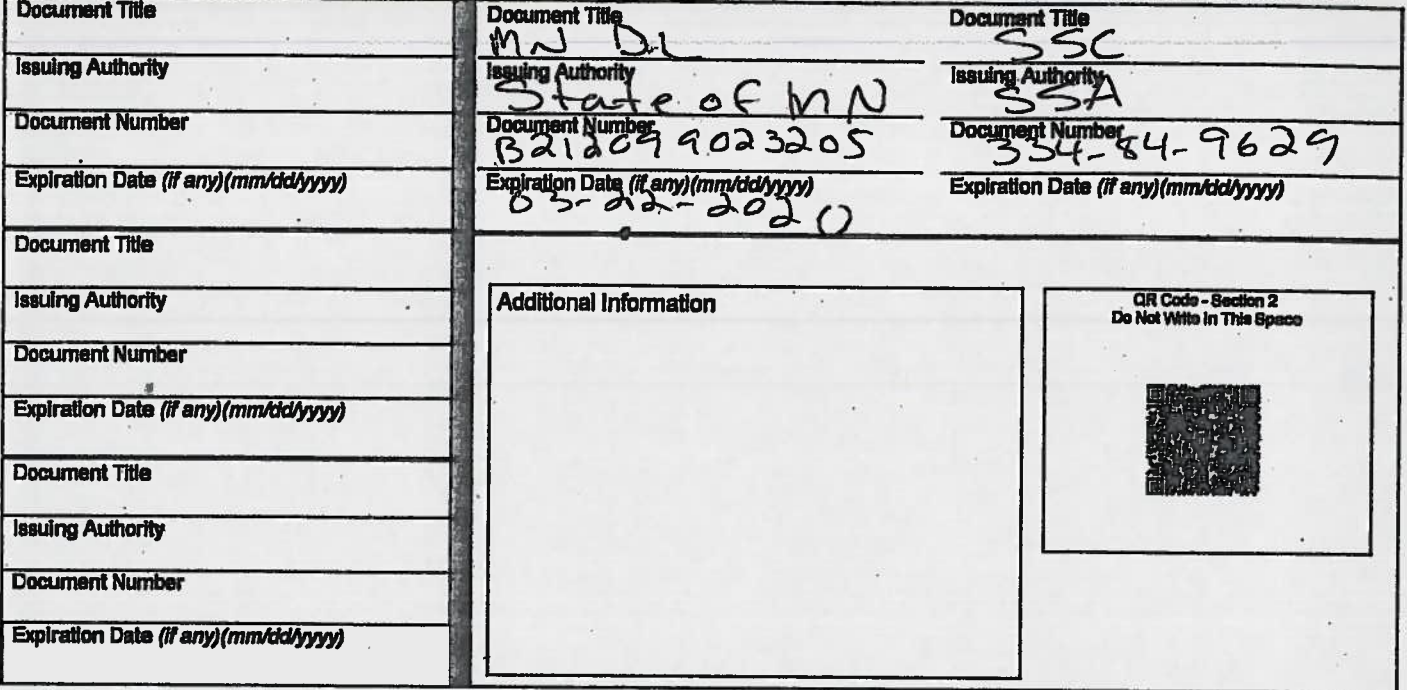 Document Title
Issuing Authority
Document Number
Expiration Date (if any)(mm/dd/yyyy)
Document Title
Issuing Authority
Document Number
Expiration Date (if any)(mm/dd/yyyy)
Document Title
Issuing Authority
Document Number
Expiration Date (if any)(mm/dd/yyyy)
Document Title
MN DL
Issuing Authority
State of MN
Document Number
B212099023205
Expiration Date (if any)(mm/dd/yyyy)
03-22-2020
Document Title
SSC
Issuing Authority
SSA
Document Number
334-84-9629
Expiration Date (if any)(mm/dd/yyyy)
Additional Information
QR Code - Section 2
Do Not Write In This Space